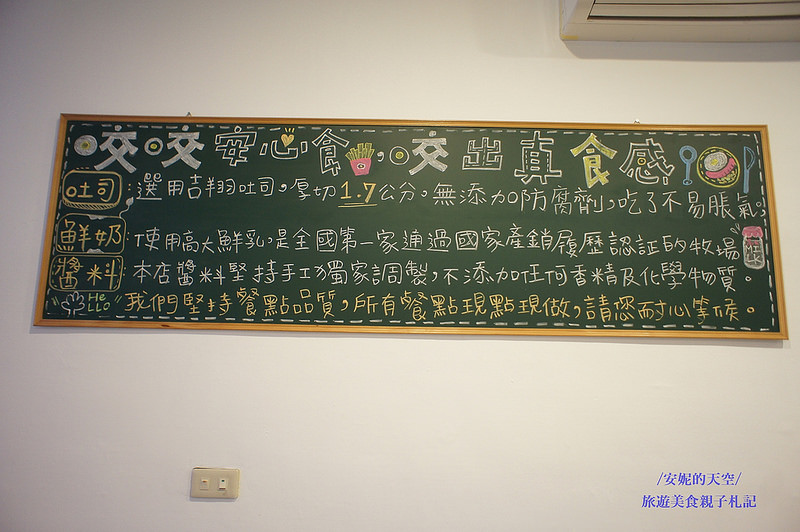 咬咬安心食，咬出真食感
吐司：選用吉翔吐司，厚切1.7公分，無添加防腐劑，吃了不易脹氣。
鮮奶：使用高大鮮乳，是全國第一家通過國家產銷履歷認証的牧場
MILK
醬料：本店醬料堅持手工獨家調製，不添加任何香精及化學物質。
HeLLO 我們堅持餐點品質，所有餐點現點現做，請您耐心等候。
/安妮的天空/
旅遊美食親子札記